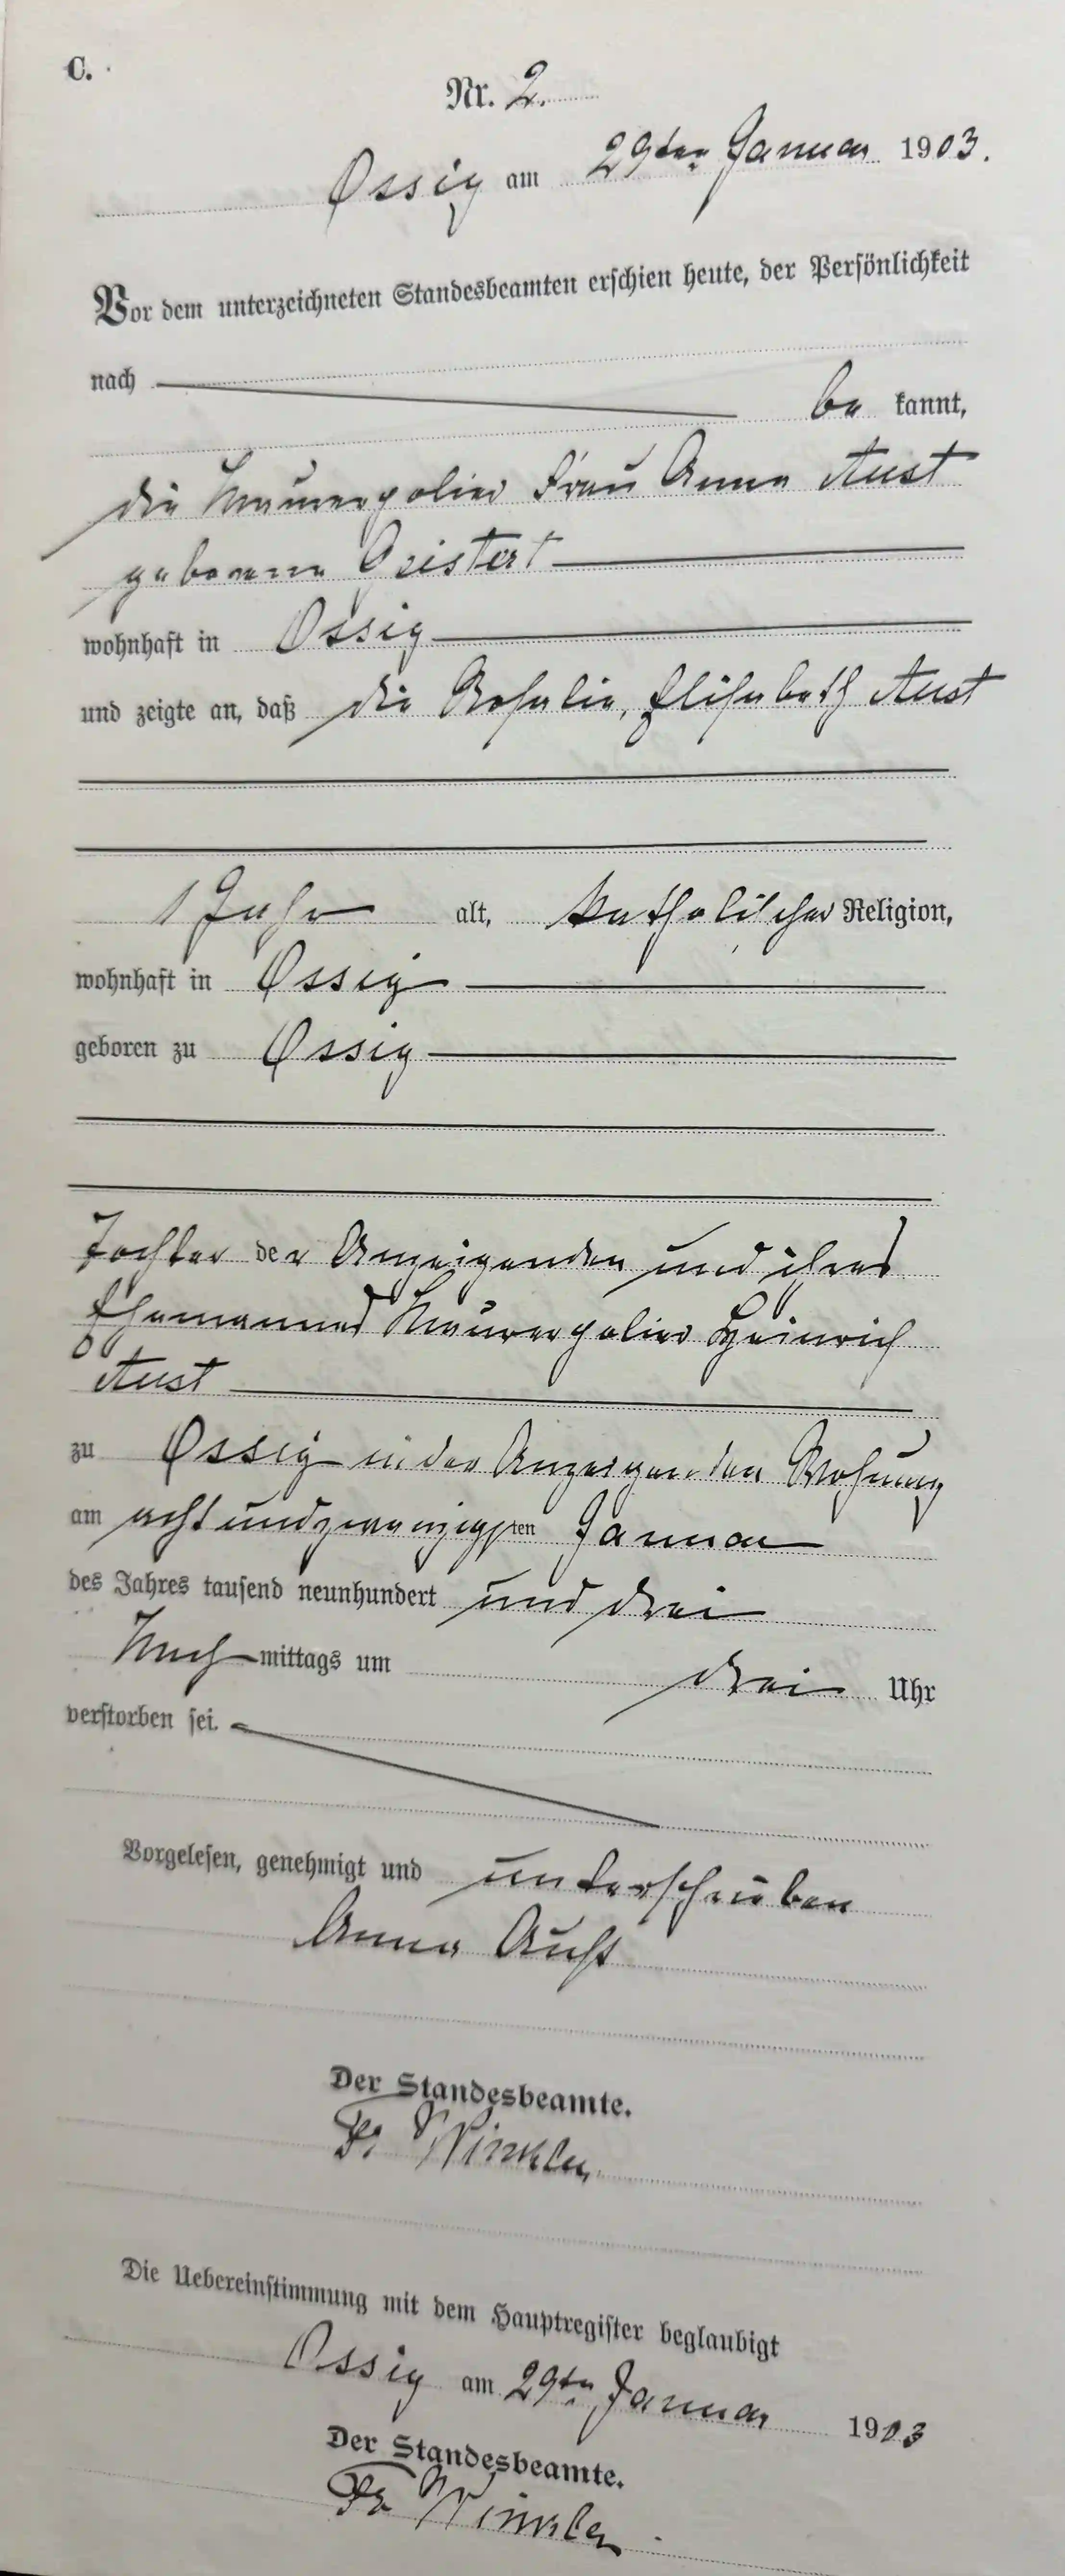 C.
Nr. 2.
Ossig am 29ten Januar 1903.
Vor dem unterzeichneten Standesbeamten erschien heute, der Persönlichkeit
nach
be kannt,
die Maurerpolier Frau Anna Aust
geborene Geistert
wohnhaft in Ossig
und zeigte an, daß die Rosalie, Elisabeth Aust
1 Jahr alt, katholischer Religion,
wohnhaft in Ossig
geboren zu Ossig
Tochter der Anzeigenden und ihres
Ehemannes Maurerpolier Heinrich
Aust
zu Ossig in der Anzeigenden Wohnung
am achtundzwanzigsten Januar
des Jahres tausend neunhundert und drei
Nach mittags um drei Uhr
verstorben sei.
Vorgelesen, genehmigt und unterschrieben
Anna Aust
Der Standesbeamte.
Fr Winkler
Die Uebereinstimmung mit dem Hauptregister beglaubigt
Ossig am 29ten Januar 1903
Der Standesbeamte.
Fr Winkler